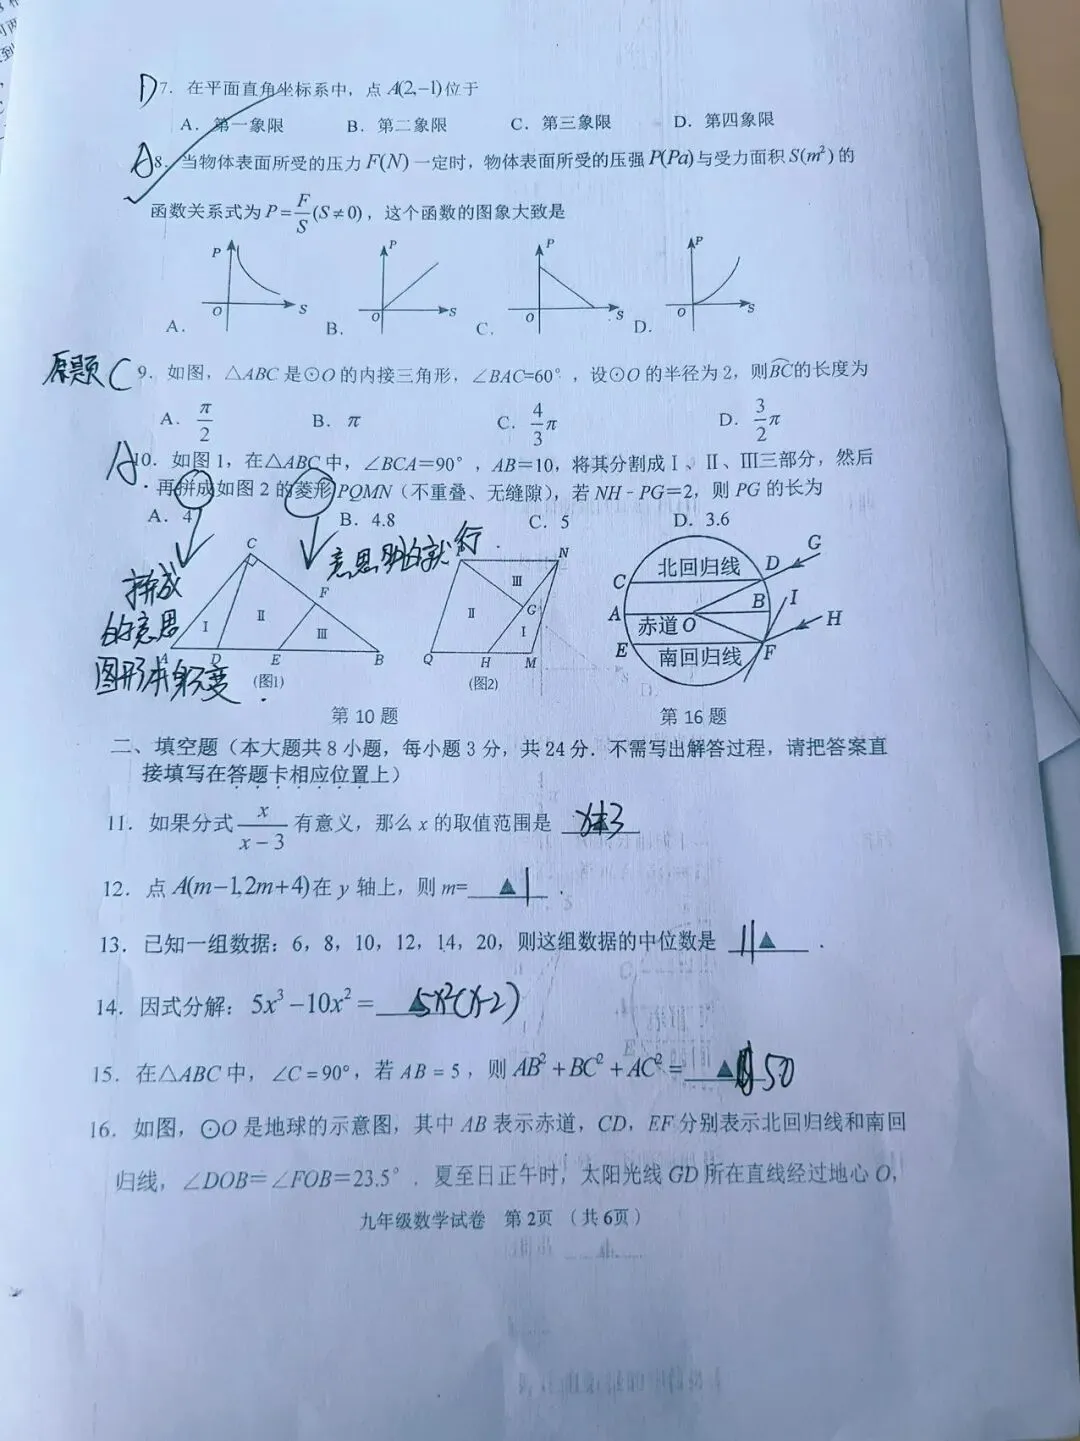 D 7. 在平面直角坐标系中，点 A(2,-1)位于
A. 第一象限 B. 第二象限 C. 第三象限 D. 第四象限
A 8. 当物体表面所受的压力 F(N) 一定时，物体表面所受的压强 P(Pa)与受力面积 S(m²) 的
函数关系式为 P=F/S(S≠0)，这个函数的图象大致是
P P P P
O S O S O S O S
A. B. C. D.
原题 C 9. 如图，△ABC 是⊙O 的内接三角形，∠BAC=60°，设⊙O 的半径为 2，则BC的长度为
A. π/2 B. π C. 4/3π D. 3/2π
A 10. 如图 1，在△ABC 中，∠BCA=90°，AB=10，将其分割成Ⅰ、Ⅱ、Ⅲ三部分，然后
再拼成如图 2 的菱形 PQMN（不重叠、无缝隙），若 NH-PG=2，则 PG 的长为
A. 4 B. 4.8 C. 5 D. 3.6
拼成
的意思
图形本身不变
C F Ⅰ Ⅱ Ⅲ A D E B
(图1)
N Ⅲ Ⅱ G Ⅰ Q H M
(图2)
第 10 题
北回归线 C D G
A 赤道 O B I H
E 南回归线 F
第 16 题
二、填空题（本大题共 8 小题，每小题 3 分，共 24 分．不需写出解答过程，请把答案直
接填写在答题卡相应位置上）
11. 如果分式 x/(x-3) 有意义，那么 x 的取值范围是 ▲ x≠3
12. 点 A(m-1,2m+4)在 y 轴上，则 m= ▲ 1 .
13. 已知一组数据：6，8，10，12，14，20，则这组数据的中位数是 11 ▲ .
14. 因式分解：5x³-10x²= ▲ 5x²(x-2)
15. 在△ABC 中，∠C=90°，若 AB=5，则 AB²+BC²+AC²= ▲ 50
16. 如图，⊙O 是地球的示意图，其中 AB 表示赤道，CD，EF 分别表示北回归线和南回
归线，∠DOB=∠FOB=23.5°．夏至日正午时，太阳光线 GD 所在直线经过地心 O，
九年级数学试卷 第 2页 （共 6页）